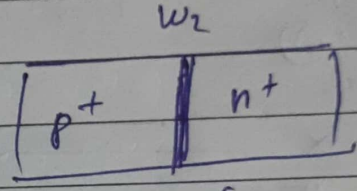 W₂
p⁺ n⁺